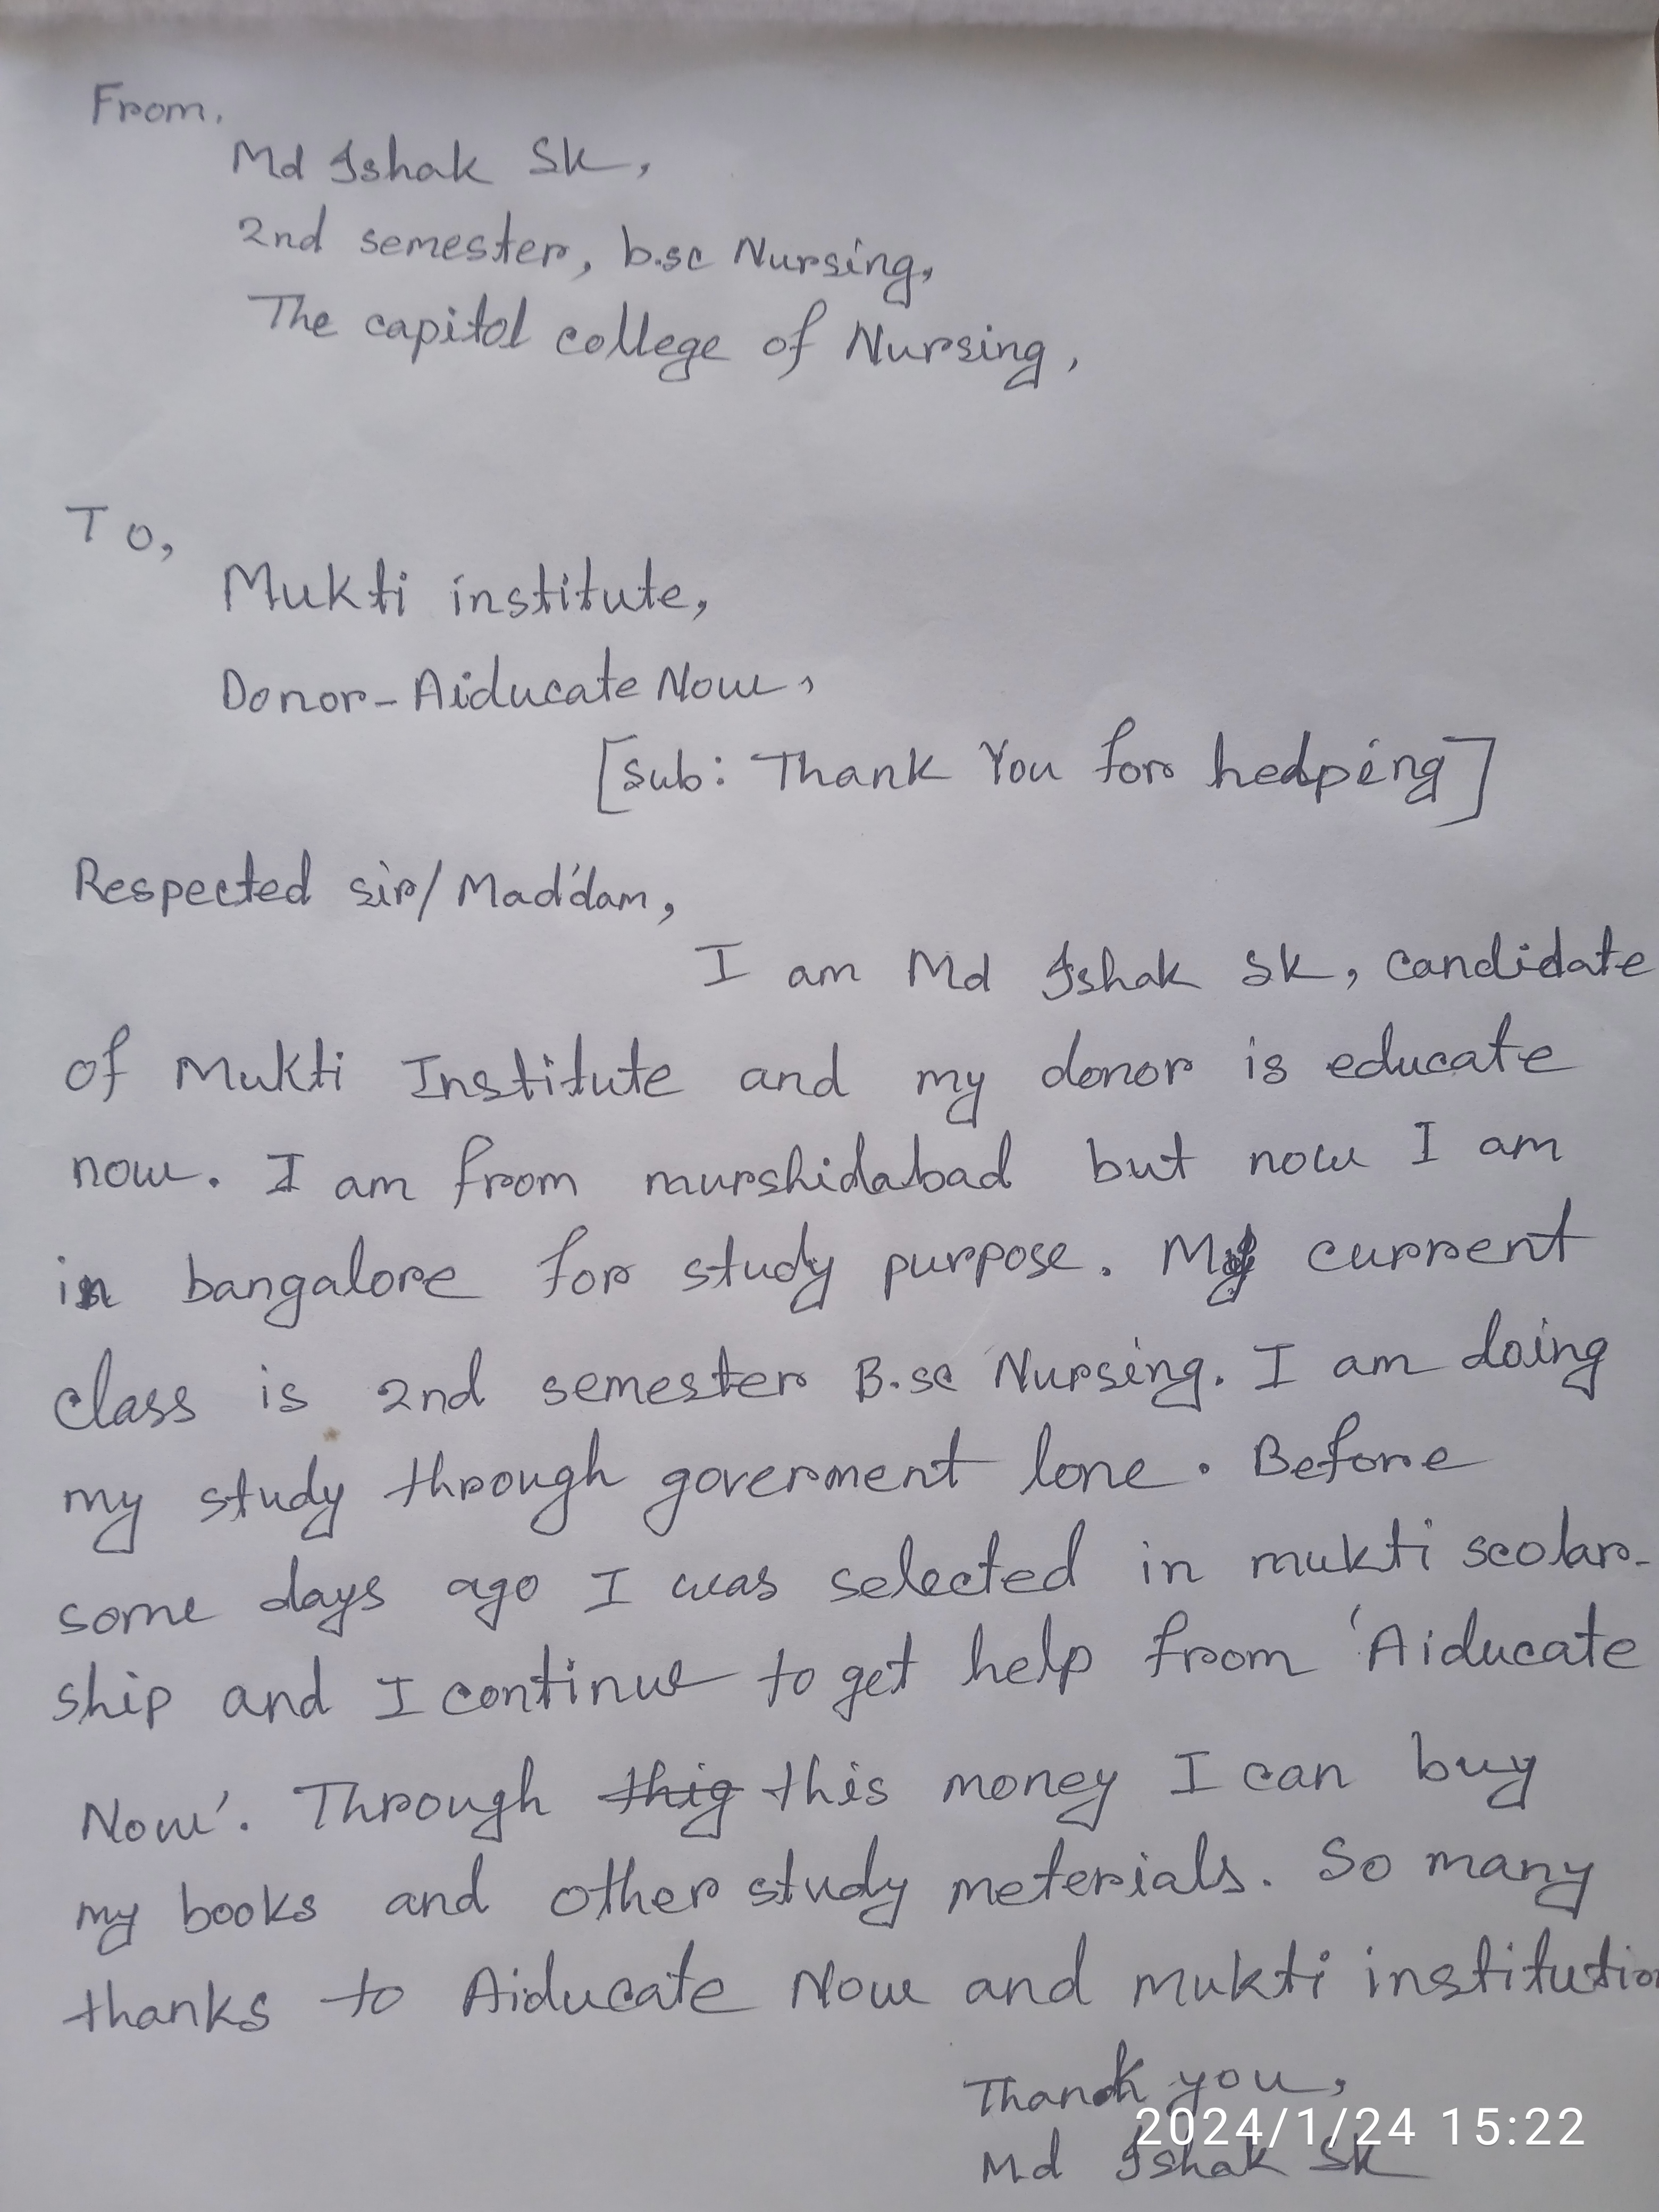 From,
Md Ishak Sk,
2nd semester, b.sc Nursing,
The capitol college of Nursing,
To,
Mukti institute,
Donor-Aiducate Now,
[Sub: Thank You for helping]
Respected sir/Mad'dam,
I am Md Ishak Sk, candidate
of Mukti Institute and my donor is educate
now. I am from murshidabad but now I am
in bangalore for study purpose. My current
class is 2nd semester B.sc Nursing. I am doing
my study through goverment lone. Before
some days ago I was selected in mukti scolar-
ship and I continue to get help from 'Aiducate
Now'. Through thig this money I can buy
my books and other study meterials. So many
thanks to Aiducate Now and mukti institution
Thank you,
2024/1/24 15:22
Md Ishak Sk